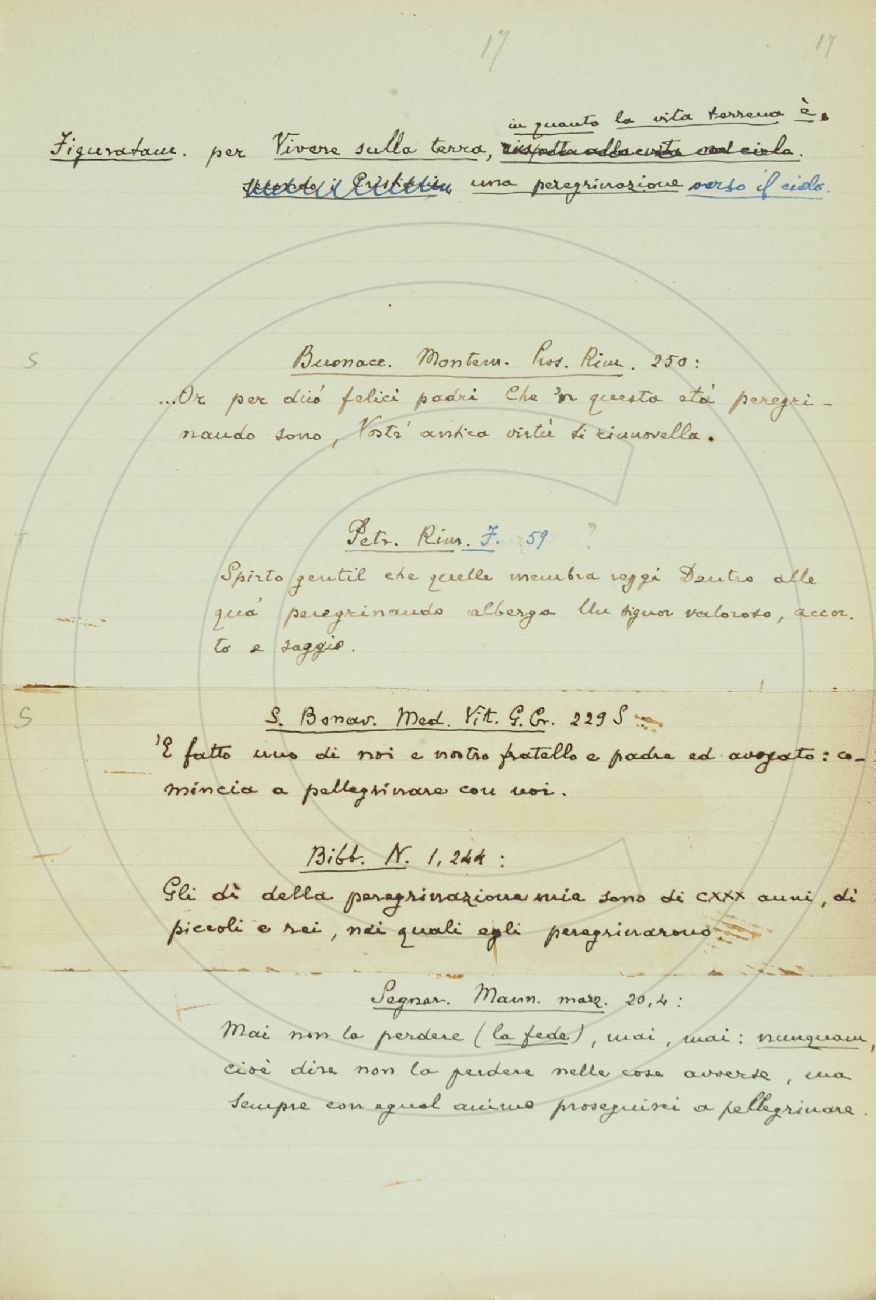 17 17
in quanto la vita terrena è
Figuratam. per Vivere sulla terra, rispetto alla vita nel cielo.
secondo i Cristiani, una peregrinazione verso il cielo.
S Buonacc. Montem. Pros. Rim. 250:
...Or per duo felici padri Che 'n questa età peregri-
nando sono, Vostr' antica virtù si rinnovella.
Petr. Rim. F. 59 ?
Spirto gentil che quelle membra reggi Dentro alle
qua' peregrinando alberga Un signor valoroso, accor-
to e saggio.
S S. Bonav. Med. Vit. G. Cr. 229 S
È fatto uno di noi e nostro fratello e padre ed avogato: co-
mincia a pellegrinare con noi.
Bibb. N. 1, 244:
Gli dì della peregrinazione mia sono di CXXX anni, di
piccoli e rei, nei quali egli peregrinarono.
Segner. Mann. marz. 20, 4:
Mai non la perdere (la fede), mai, mai: nunquam,
cioè dire non la perdere nelle cose avverse, ma
sempre con egual animo proseguisci a pellegrinare.